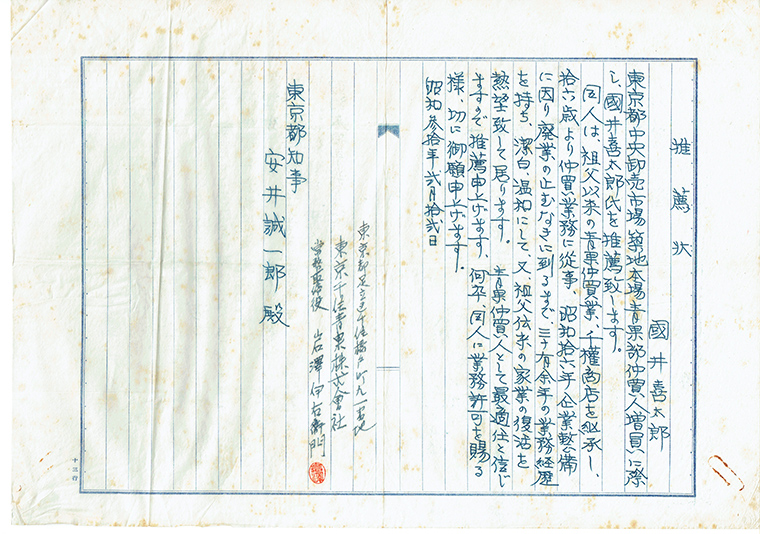 推薦状
國井喜太郎
東京都中央卸売市場築地本場青果部仲買人増員に際
し、國井喜太郎氏を推薦致します。
同人は、祖父以来の青果仲買業、千権商店を継承し、
拾六歳より仲買業務に従事、昭和拾六年企業整備
に因り廃業の止むなきに到るまで、三十有余年の業務経歴
を持ち、潔白、温和にして、又、祖父伝来の家業の復活を
熱望致して居ります。青果仲買人として最適任と信じ
ますので推薦申上げます、何卒、同人に業務許可を賜る
様、切に御願申上げます。
昭和参拾年弐月拾弐日
東京都足立区千住橋戸町九一番地
東京千住青果株式會社
岩澤伊右衛門
東京都知事
安井誠一郎殿
十三行